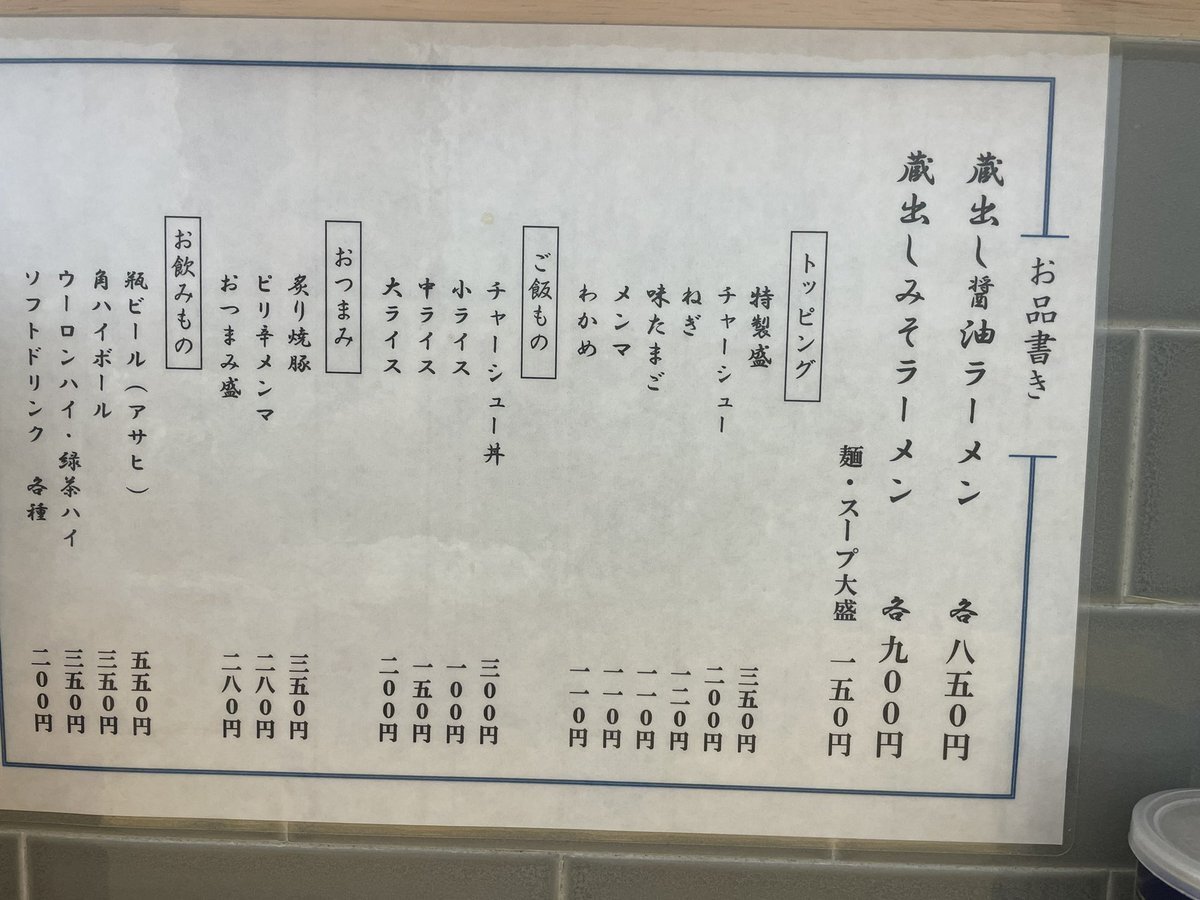 お品書き
蔵出し醤油ラーメン 各八五0円
蔵出しみそラーメン 各九00円
麺・スープ大盛 一五0円
トッピング
特製盛 三五0円
チャーシュー 二00円
ねぎ 一二0円
味たまご 一一0円
メンマ 一一0円
わかめ 一一0円
ご飯もの
チャーシュー丼 三00円
小ライス 一00円
中ライス 一五0円
大ライス 二00円
おつまみ
炙り焼豚 三五0円
ピリ辛メンマ 二八0円
おつまみ盛 二八0円
お飲みもの
瓶ビール(アサヒ) 五五0円
角ハイボール 三五0円
ウーロンハイ・緑茶ハイ 三五0円
ソフトドリンク 各種 二00円